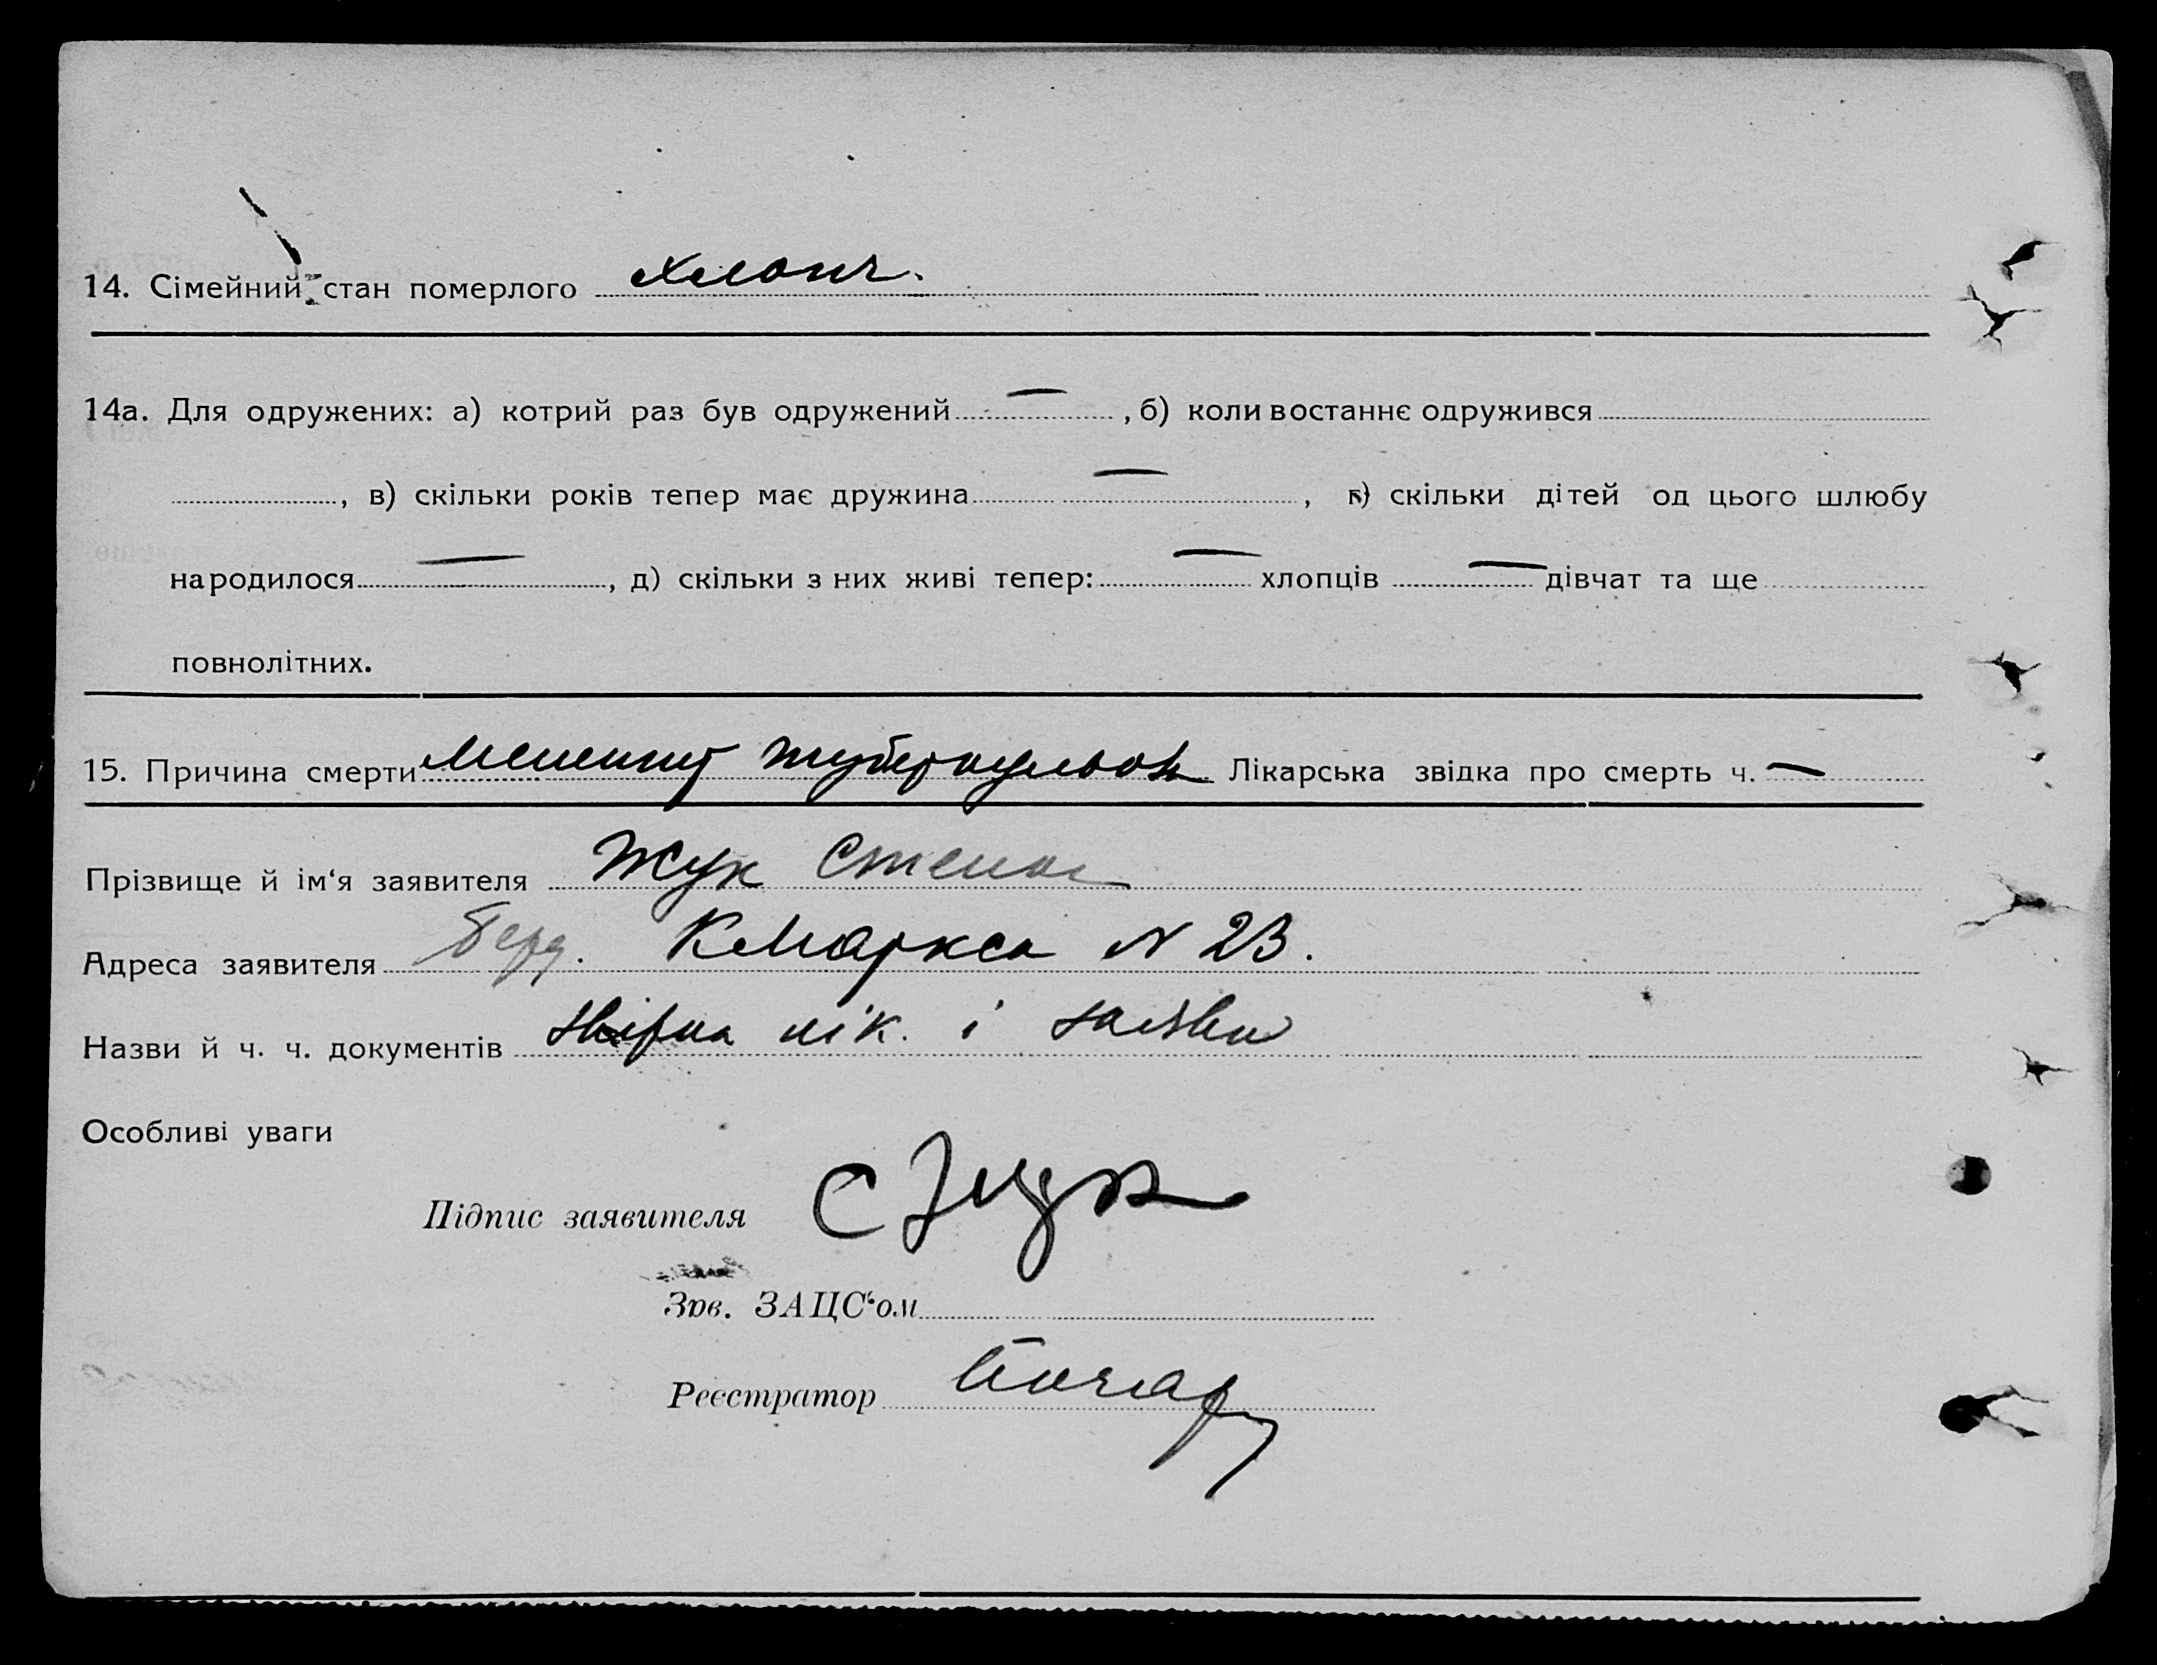 14. Сімейний стан померлого хлопч.
14а. Для одружених: а) котрий раз був одружений — , б) коли востаннє одружився
, в) скільки років тепер має дружина — , г) скільки дітей од цього шлюбу
народилося — , д) скільки з них живі тепер: — хлопців — дівчат та ще
повнолітних.
15. Причина смерти Менингит туберкульозн Лікарська звідка про смерть ч. —
Прізвище й ім‘я заявителя Жук Степан
Адреса заявителя Берд. К Маркса N 23.
Назви й ч. ч. документів лік. і заява
Особливі уваги
Підпис заявителя С Жук
Зав. ЗАЦС‘ом
Реєстратор